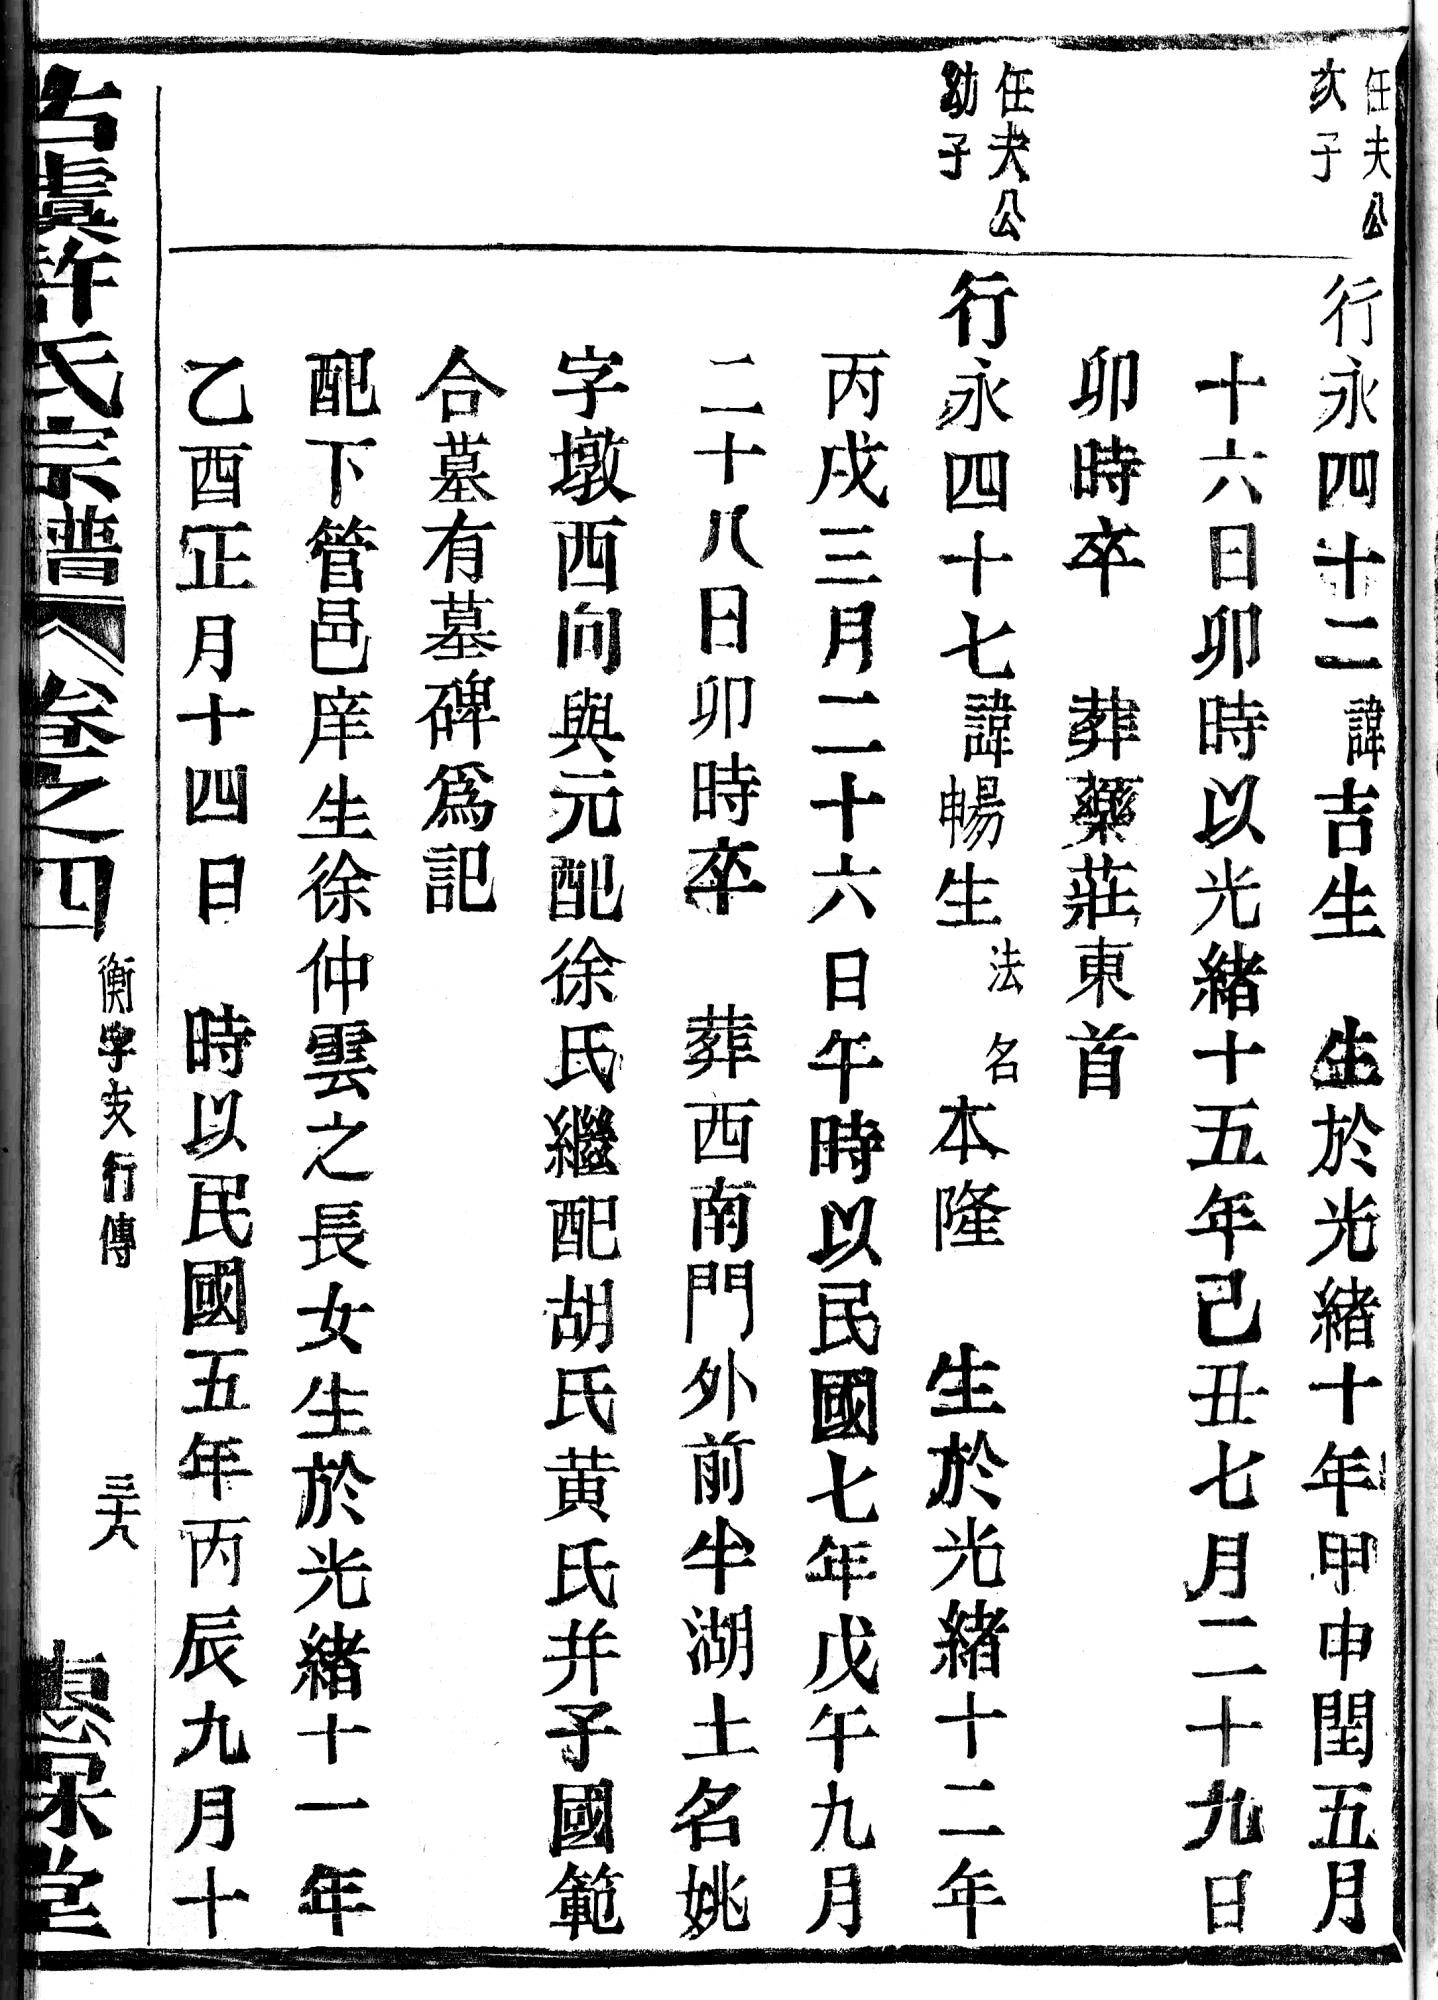 任夫公
次子
行永四十二諱吉生　生於光緒十年甲申閏五月
十六日卯時以光緒十五年己丑七月二十九日
卯時卒　葬藥莊東首
任夫公
幼子
行永四十七諱暢生法名本隆　生於光緒十二年
丙戌三月二十六日午時以民國七年戊午九月
二十八日卯時卒　葬西南門外前半湖土名姚
字墩西向與元配徐氏繼配胡氏黄氏幷子國範
合墓有墓碑爲記
配下管邑庠生徐仲雲之長女生於光緒十一年
乙酉正月十四日　時以民國五年丙辰九月十
古虞許氏宗譜　卷之四　衡字支行傳　三十八　惠保堂